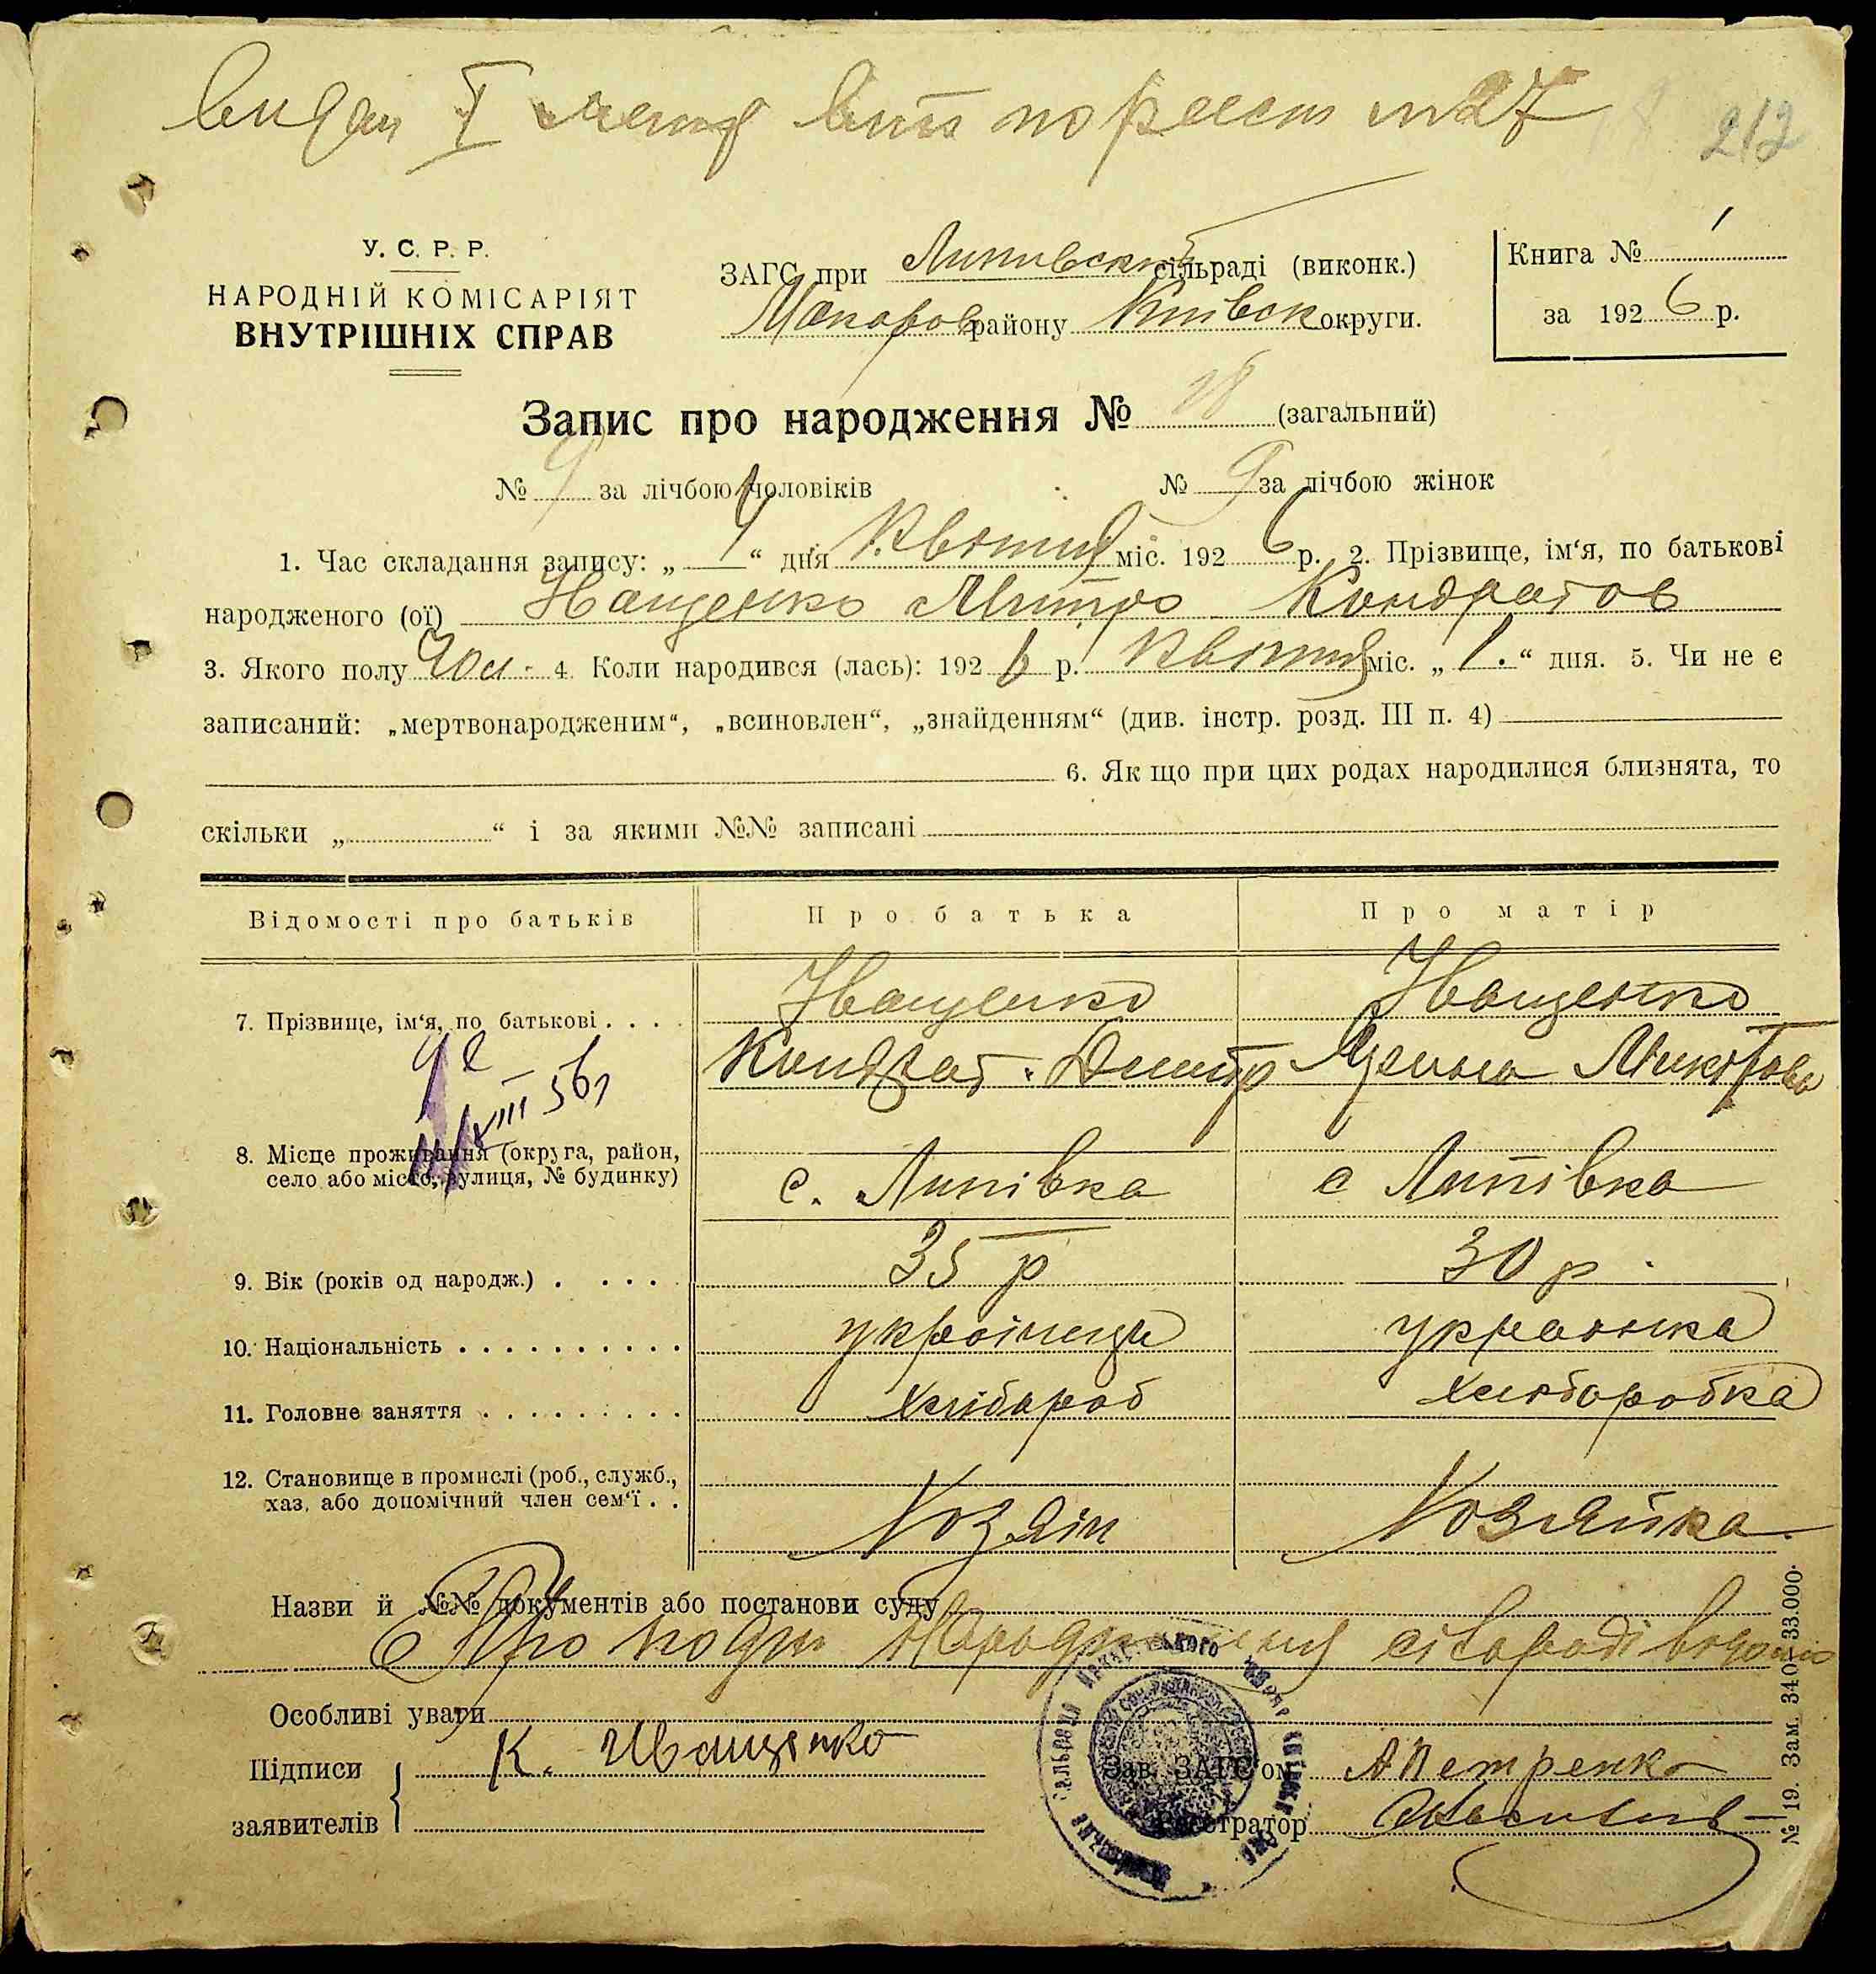 видан по реест №27
212
У. С. Р. Р.
НАРОДНІЙ КОМІСАРІЯТ
ВНУТРІШНІХ СПРАВ
ЗАГС при Липивский сільраді (виконк.)
Макаров району Київск округи.
Книга № 1
за 1926 р.
Запис про народження № 18 (загальний)
№ 9 за лічбою чоловіків
№ 9 за лічбою жінок
1. Час складання запису: „ “ дня Квітня міс. 1926 р. 2. Прізвище, ім‘я, по батькові
народженого (ої) Іващенко Митро Кондратов
3. Якого полу Чол. 4. Коли народився (лась): 1926 р. Квітня міс. „1.“ дня. 5. Чи не є
записаний: „мертвонародженим“, „всиновлен“, „знайденням“ (див. інстр. розд. III п. 4)
6. Як що при цих родах народилися близнята, то
скільки „ “ і за якими №№ записані
Відомості про батьків
Про батька
Про матір
7. Прізвище, ім‘я, по батькові . . . .
Іващенко
Кондрат Дмитр
Іващенко
Ярина Микитова
VIII 56
8. Місце проживання (округа, район,
село або місто, вулиця, № будинку)
с. Липівка
с Липівка
9. Вік (років од народж.) . . . .
35 р
30 р.
10. Національність . . . . . . . . . .
українець
украинка
11. Головне заняття . . . . . . . . .
хлібороб
хліборобка
12. Становище в промислі (роб., служб.,
хаз. або допомічний член сем‘ї . .
Хозяін
Хозяйка
Назви й №№ документів або постанови суду
Про подію народження сільраді відомо
Особливі уваги
Підписи
заявителів
К. Иващенко
Зав. ЗАГС‘ом А Петренко
Реєстратор
№ 19. Зам. 340—33.000.